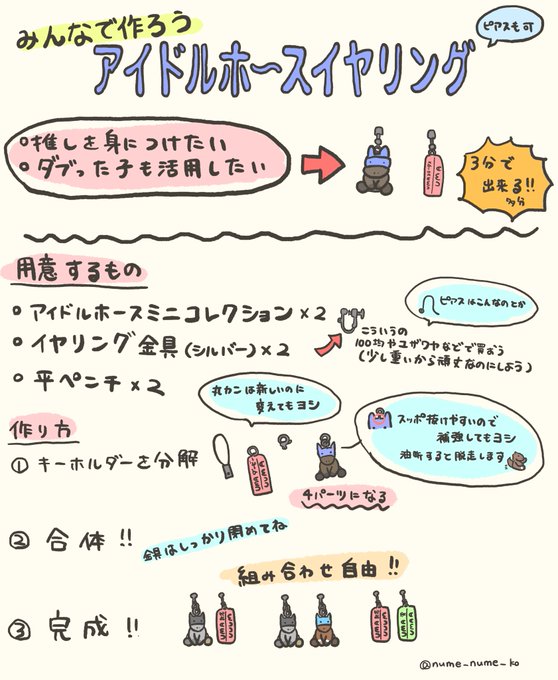 みんなで作ろう
ピアスも可
アイドルホースイヤリング
○推しを身につけたい
○ダブった子も活用したい
3分で
出来る!!
用意するもの
○アイドルホースミニコレクション×2
○イヤリング金具(シルバー)×2
こういうの
100均やユザワヤなどで買おう
(少し重いから頑丈なのにしよう)
ピアスはこんなのとか
○平ペンチ×2
作り方
丸カンは新しいのに
変えてもヨシ
スッポ抜けやすいので
補強してもヨシ
油断すると脱走します
①キーホルダーを分解
4パーツになる
②合体!!
金具はしっかり閉めてね
組み合わせ自由!!
③完成!!
@nume_nume_ko